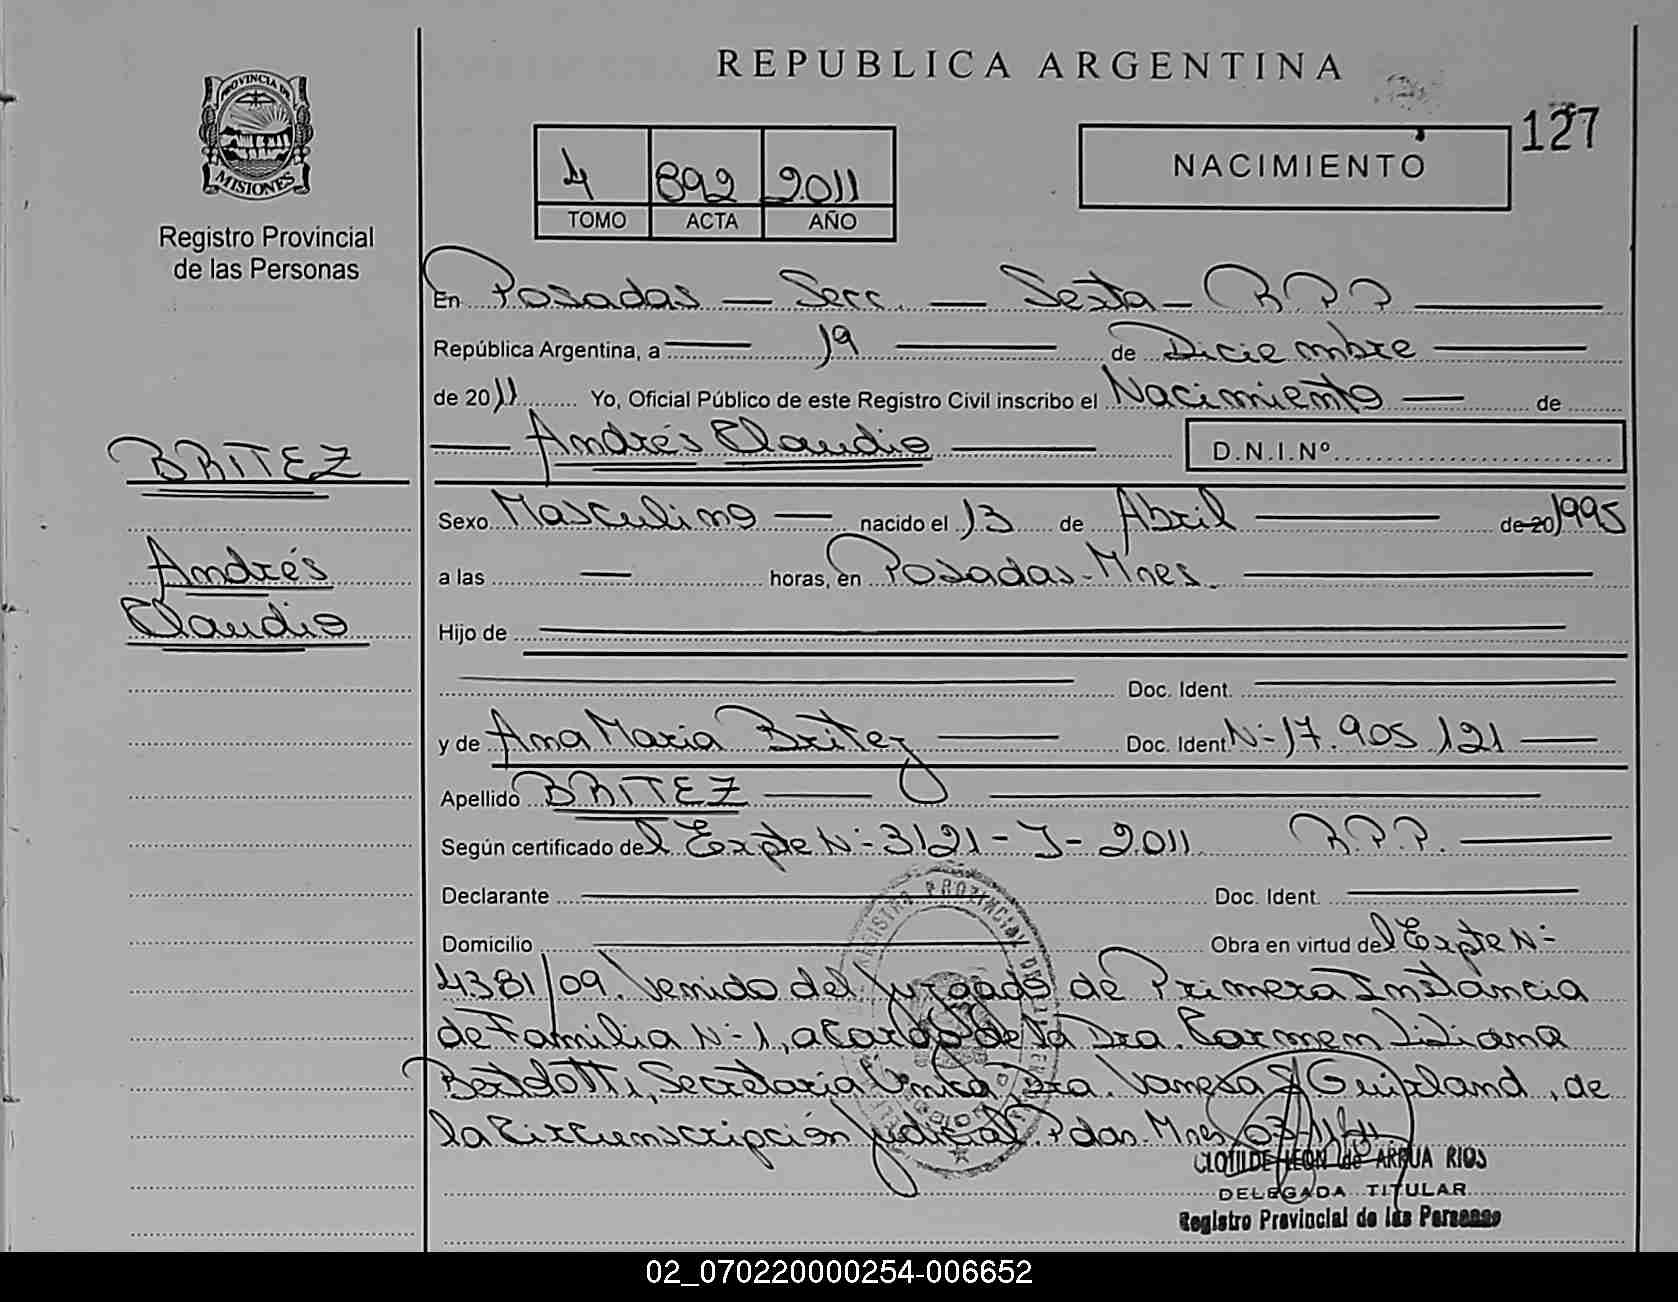 REPUBLICA ARGENTINA
PROVINCIA DE
MISIONES
Registro Provincial
de las Personas
4 892 2011
TOMO ACTA AÑO
NACIMIENTO
127
En Posadas — Secc. — Sexta — R.P.P
República Argentina, a 19 de Diciembre
de 2011 Yo, Oficial Público de este Registro Civil inscribo el Nacimiento de
Andrés Claudio D.N.I.Nº
BRITEZ
Andrés
Claudio
Sexo Masculino nacido el 13 de Abril de 20 1995
a las — horas, en Posadas-Mnes.
Hijo de
Doc. Ident.
y de Ana Maria Britez Doc. Ident N- 17.905.121
Apellido BRITEZ
Según certificado del Expte N- 3121-J-2011 R.P.P.
Declarante Doc. Ident.
Domicilio Obra en virtud del Expte N-
4381/09. Venido del Juzgado de Primera Instancia
de Familia N-1, a cargo de la Dra. Carmen Liliana
Bertolotti, Secretaria Unica Dra. Vanesa Guirland, de
la Circunscripción Judicial. Pdas. Mnes. 03/11/11.
REGISTRO PROVINCIAL DE
CLOTILDE LEON de ARRUA RIOS
DELEGADA TITULAR
Registro Provincial de las Personas
02_070220000254-006652